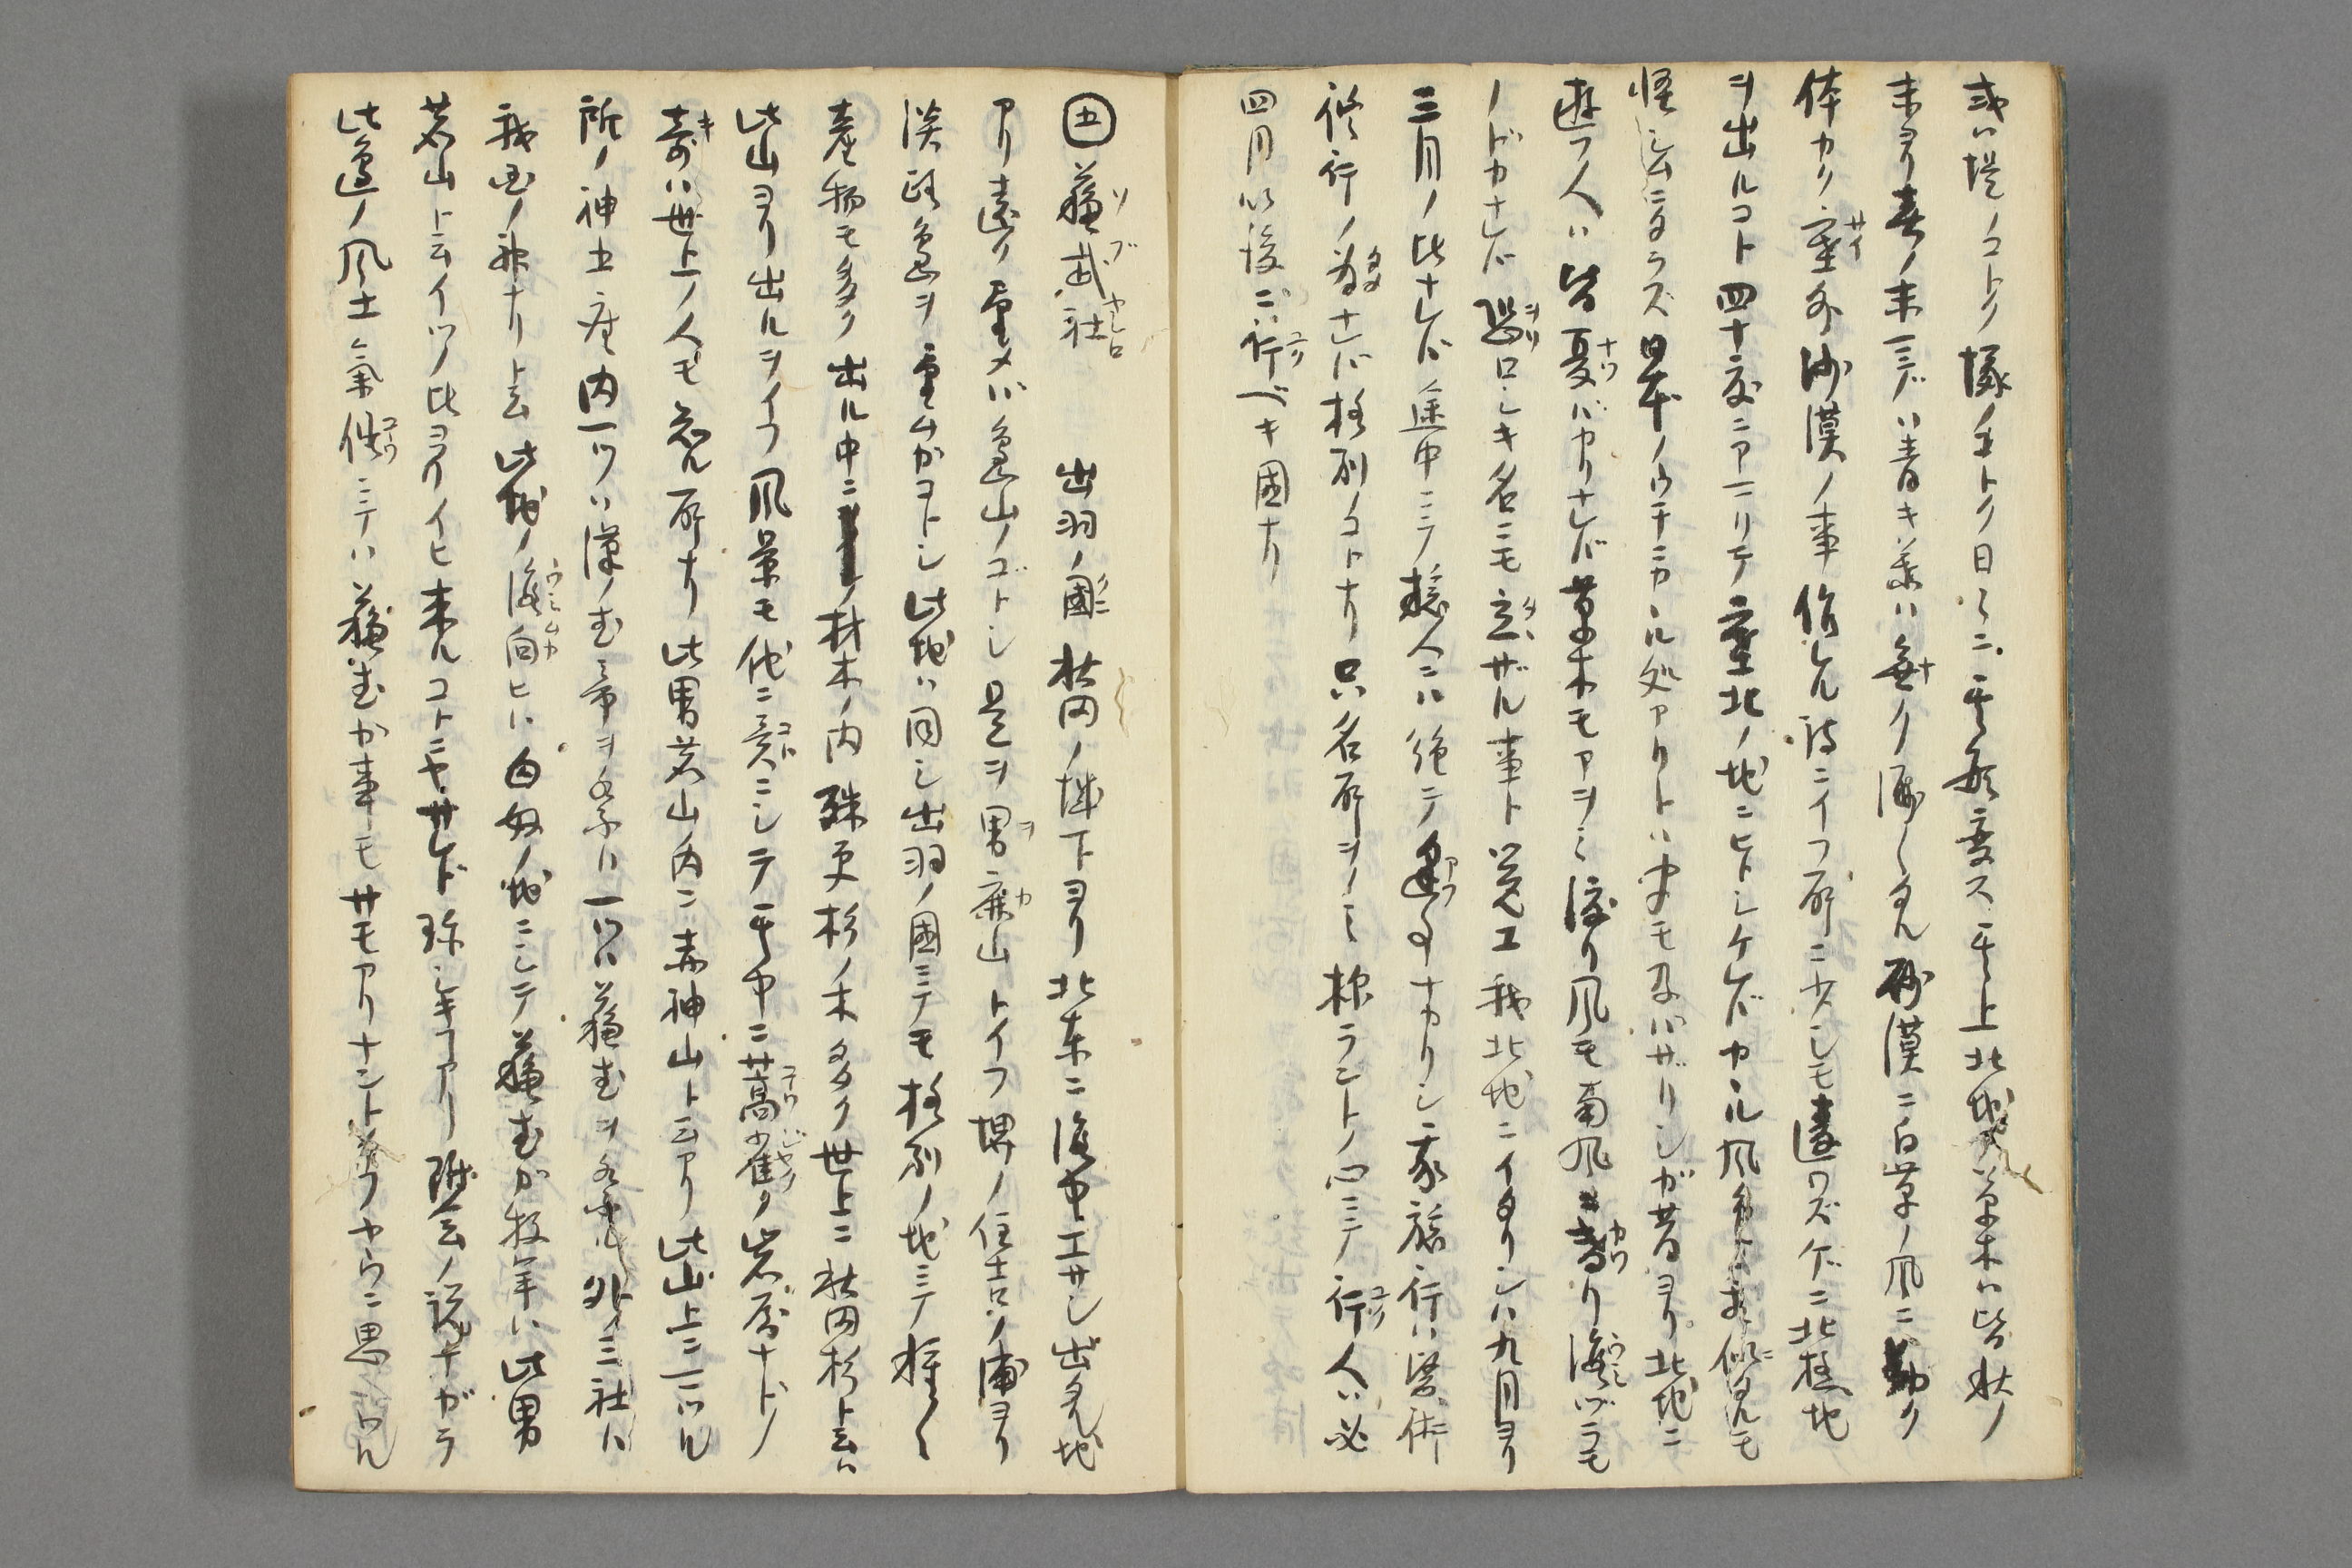 或ハ堤ノコトク塚ノコトク日〻ニ其形変ス其上北地ハ草木ハ皆秋ノ
末ヨリ春ノ末マデハ青キ葉ハ無ク渺〻タル砂漠ニ白草ノ風ニ動ク
体カリ塞外沙漠ノ事作レル詩ニイフ所ニ少シモ違ワズゲニ北極地
ヲ出ルコト四十度ニアマリテ塞北ノ地ニヒトシケレバカヽル風色ニ似タルモ
怪シムニタラズ日本ノウチニカヽル処アリトハ中モ及バザリシガ昔ヨリ北地ニ
遊フ人ハ皆夏バカリナレバ草木モアヲミ渡リ風モ南風ニ替リ海ヅラモ
ノドカナレバ恐ロシキ名ニモ立ザル事ト覚エ我北地ニイタリシハ九月ヨリ
三月ノ比ナレバ途中ニテ旅人ニハ絶テ逢事ナカリシ我旅行ハ医術
修行ノ為ナレバ格別ノコトナリ只名所ヲノミ探ラントノ心ニテ行人ハ必
四月以後ニ行ベキ國ナリ
五 蘓武社 出羽ノ國秋田ノ城下ヨリ北東ニ海中エサシ出タル地
アリ遠ク望メバ島山ノゴトシ是ヲ男鹿山トイフ堺ノ住吉ノ浦ヨリ
淡路島ヲ望ムガコトシ此地ハ同シ出羽ノ國ニテモ格別ノ地ニテ種〻
産物モ多ク出ル中ニ材木ノ内殊更杉ノ木多ク世上ニ秋田杉ト云ハ
此山ヨリ出ルヲイフ風景モ他ニ異ニシテ其中ニ高雀ノ岩屋ナドノ
奇ハ世上ノ人モ知ル所ナリ此男鹿山ノ内ニ赤神山ト云アリ此山上ニ
所ノ神五座内一ツハ漢ノ武帝ヲ祭ル一ツハ蘓武ヲ祭ル外ノ三社ハ
我国ノ神ナリト云此地ノ海向ヒハ匈奴ノ地ニシテ蘓武ガ牧羊ハ此男
鹿山ト云イツノ比ヨリイヒ来ルコトニヤサレド珍シキコアリ附会ノ説ナガラ
此邉ノ風土氣候ニテハ蘓武カ事モサモアリナント サフヤウニ思ハル